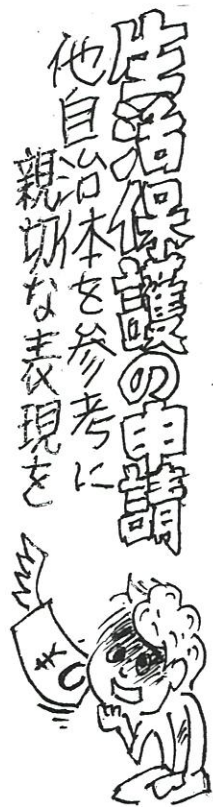 生活保護の申請
他自治体を参考に
親切な表現を